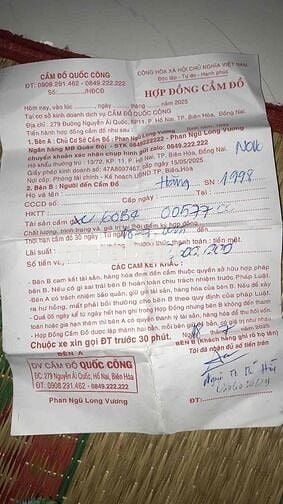 CẦM ĐỒ QUỐC CÔNG
ĐT: 0908.291.462 - 0849.222.222
Số: /HĐCĐ
CỘNG HÒA XÃ HỘI CHỦ NGHĨA VIỆT NAM
Độc lập - Tự do - Hạnh phúc
HỢP ĐỒNG CẦM ĐỒ
Hôm nay, vào lúc ngày tháng năm 2025
Tại cơ sở kinh doanh dịch vụ CẦM ĐỒ QUỐC CÔNG
Địa chỉ: 279 Đường Nguyễn Ái Quốc, P. Hố Nai, TP. Biên Hòa, Đồng Nai.
Tiến hành hợp đồng cầm đồ như sau:
1. Bên A: Chủ Cơ Sở Cầm Đồ: Phan Ngũ Long Vương
Ngân hàng MB Quân Đội - STK 0849222222 - Phan Ngũ Long Vương
chuyển khoản xong nhớ chụp hình gửi zalo: 0849.222.222
Hộ khẩu thường trú: KP. 11, P. Hố Nai, TP. Biên Hòa, Đồng Nai.
Giấy phép kinh doanh số: cấp ngày 15/05/2025
Nơi cấp: Phòng tài chính - Kế hoạch UBND TP.Biên Hòa
2. Bên B: Người Đến Cầm Đồ
Họ và tên: Hồng SN 1998
CCCD số: Cấp ngày Tại
HKTT:
Tài sản cầm 60B4 00577
Chất lượng, tình trạng và giá trị tại thời điểm ký hợp đồng
Thời hạn cầm đồ 30 ngày: Từ
Lãi suất: phương thức thanh toán: tiền mặt.
Số tiền vay
CÁC CAM KẾT KHÁC
- Bên B cam kết tài sản, hàng hóa đem đến cầm thuộc quyền sở hữu hợp pháp
bên B. Nếu có gì sai trái bên B hoàn toàn chịu trách nhiệm trước Pháp Luật.
- Bên A có trách nhiệm bảo quản, giữ gìn tài sản, hàng hóa của bên B. Nếu để xảy
ra hư hỏng, mất phải bồi thường cho bên B theo quy định của pháp Luật.
- Quá 05 ngày kể từ ngày hết hạn ghi trong Hợp Đồng nhưng bên B không đến thanh
toán hoặc gia hạn thêm thì bên A có quyền thanh lý tài sản, hàng hóa để thu hồi vốn.
Hợp Đồng Cầm Đồ lập thành hai bản, mỗi bên giữ một bản có giá trị như nhau.
Chuộc xe xin gọi ĐT trước 30 phút.
BÊN A
DV CẦM ĐỒ QUỐC CÔNG
ĐC: 279 Nguyễn Ái Quốc, Hố Nai, Biên Hòa
ĐT: 0908.291.462 - 0849.222.222
Phan Ngũ Long Vương
năm 2025
BÊN B (Khách hàng ghi rõ họ tên)
Tôi đã nhận đủ số tiền trên
ĐT: